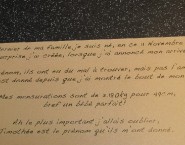 dernier de ma famille, je suis né, en ce 11 Novembre
surprise j'ai créée, lorsque j'ai annoncé mon arrivée
donné, ils ont eu du mal à trouver, mais pas l'an
est donné depuis que j'ai montré le bout de mon
Mes mensurations sont de 3180kg pour 49cm,
bref un bébé parfait!
Ah le plus important j'allais oublier,
Timothée est le prénom qu'ils m'ont donné.